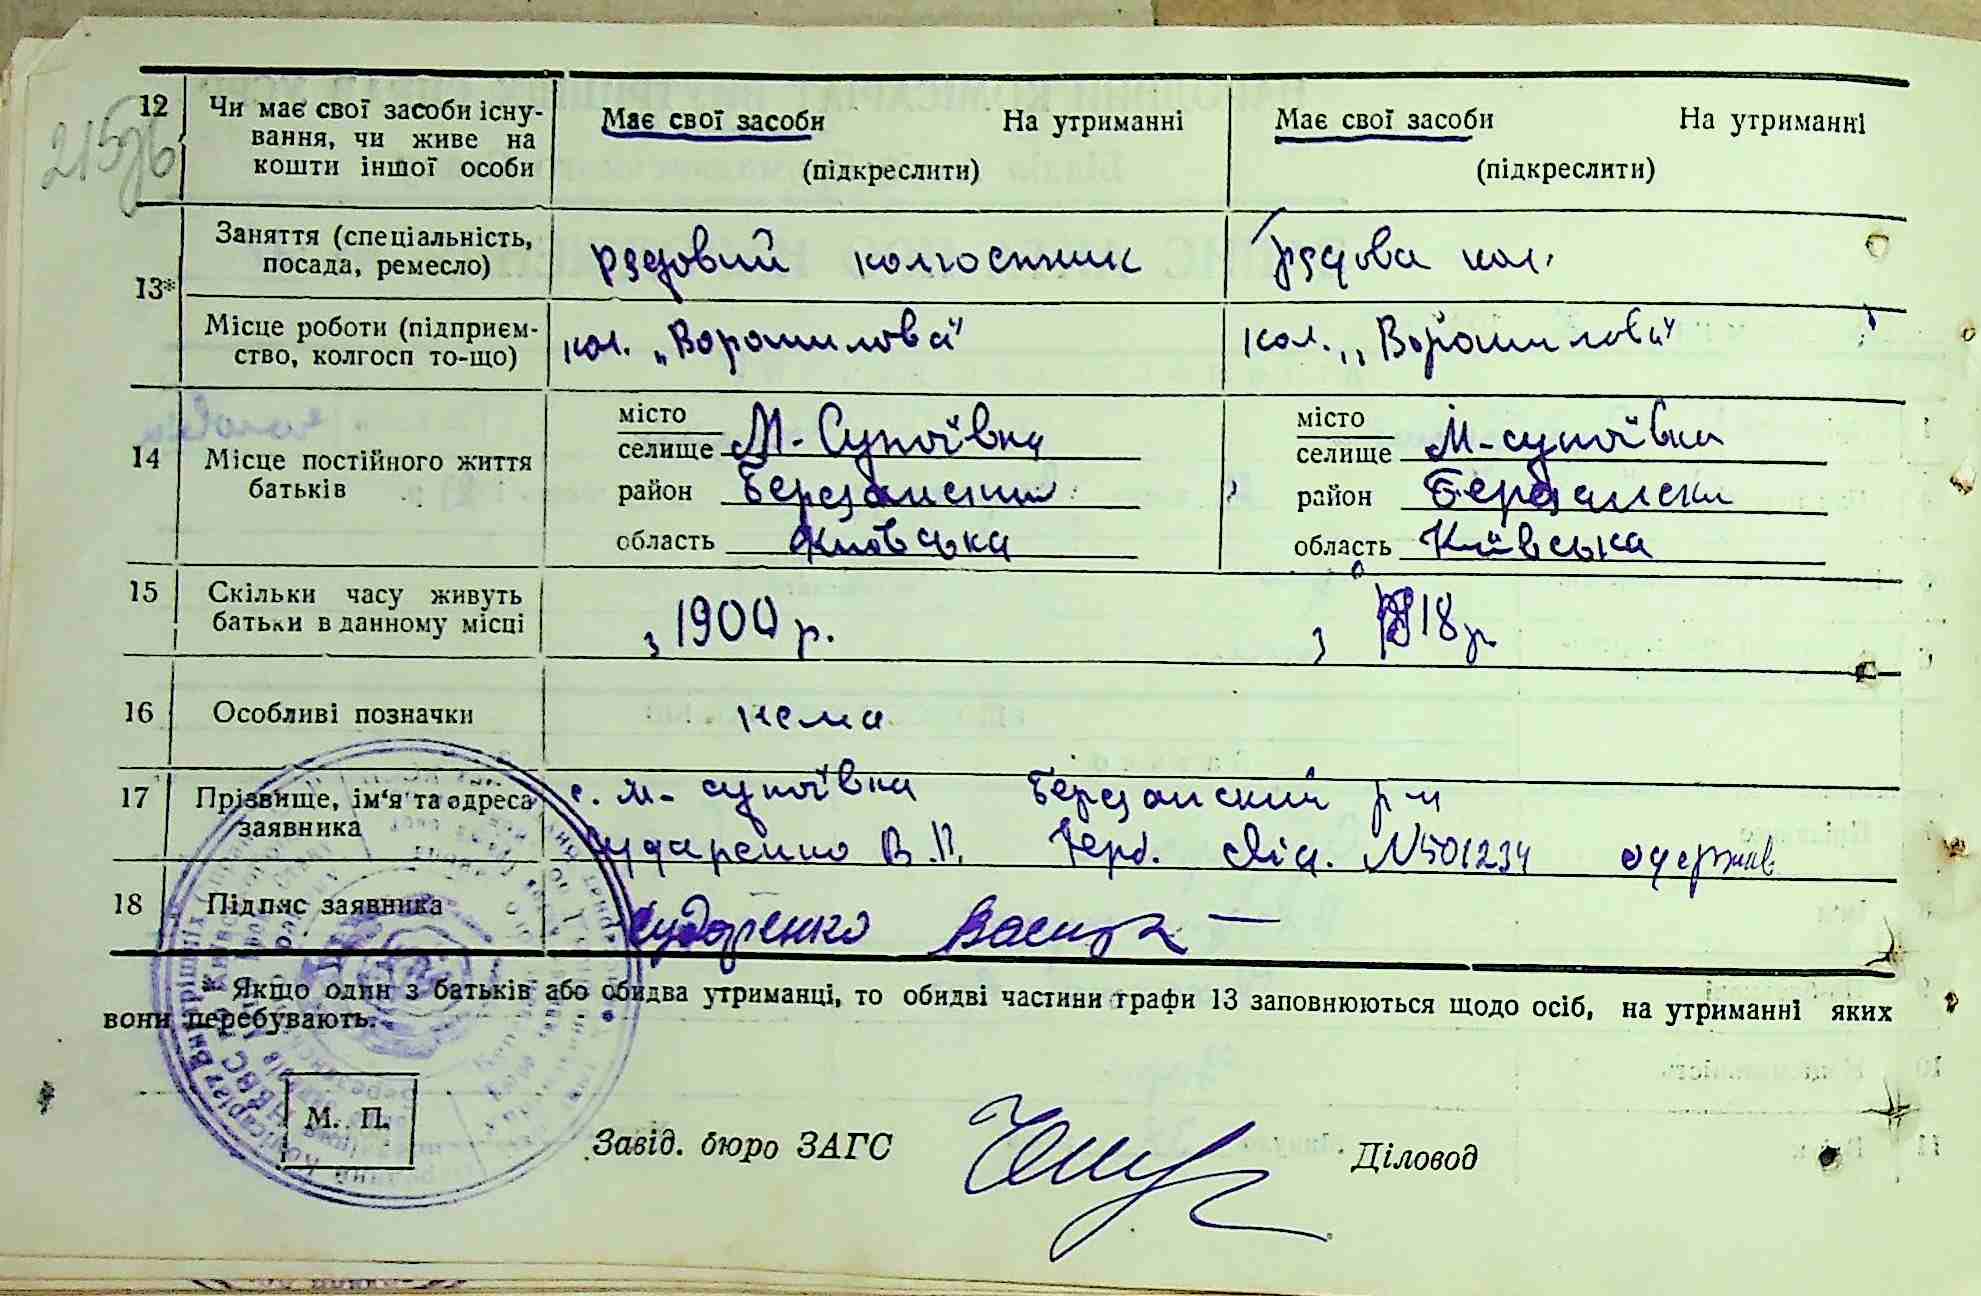 215об
12 Чи має свої засоби існу- Має свої засоби На утриманні Має свої засоби На утриманні
вання, чи живе на
кошти іншої особи (підкреслити) (підкреслити)
13* Заняття (спеціальність, рядовий колгоспник рядова кол.
посада, ремесло)
Місце роботи (підприєм- кол. „Ворошилова" кол. „Ворошилова"
ство, колгосп то-що)
14 Місце постійного життя
батьків
місто
селище М-Супоївка
район Березанский
область Київська
місто
селище М-супоївка
район Березански
область Київська
15 Скільки часу живуть
батьки в данному місці з 1900 р. з 18 р
16 Особливі позначки нема
17 Прізвище, ім'я та адреса с. М-супоївка Березанский р-н
заявника В. П. Герб. свід. №501234 одержав
18 Підпис заявника
* Якщо один з батьків або обидва утриманці, то обидві частини графи 13 заповнюються щодо осіб, на утриманні яких
вони перебувають.
М. П.
Завід. бюро ЗАГС Діловод